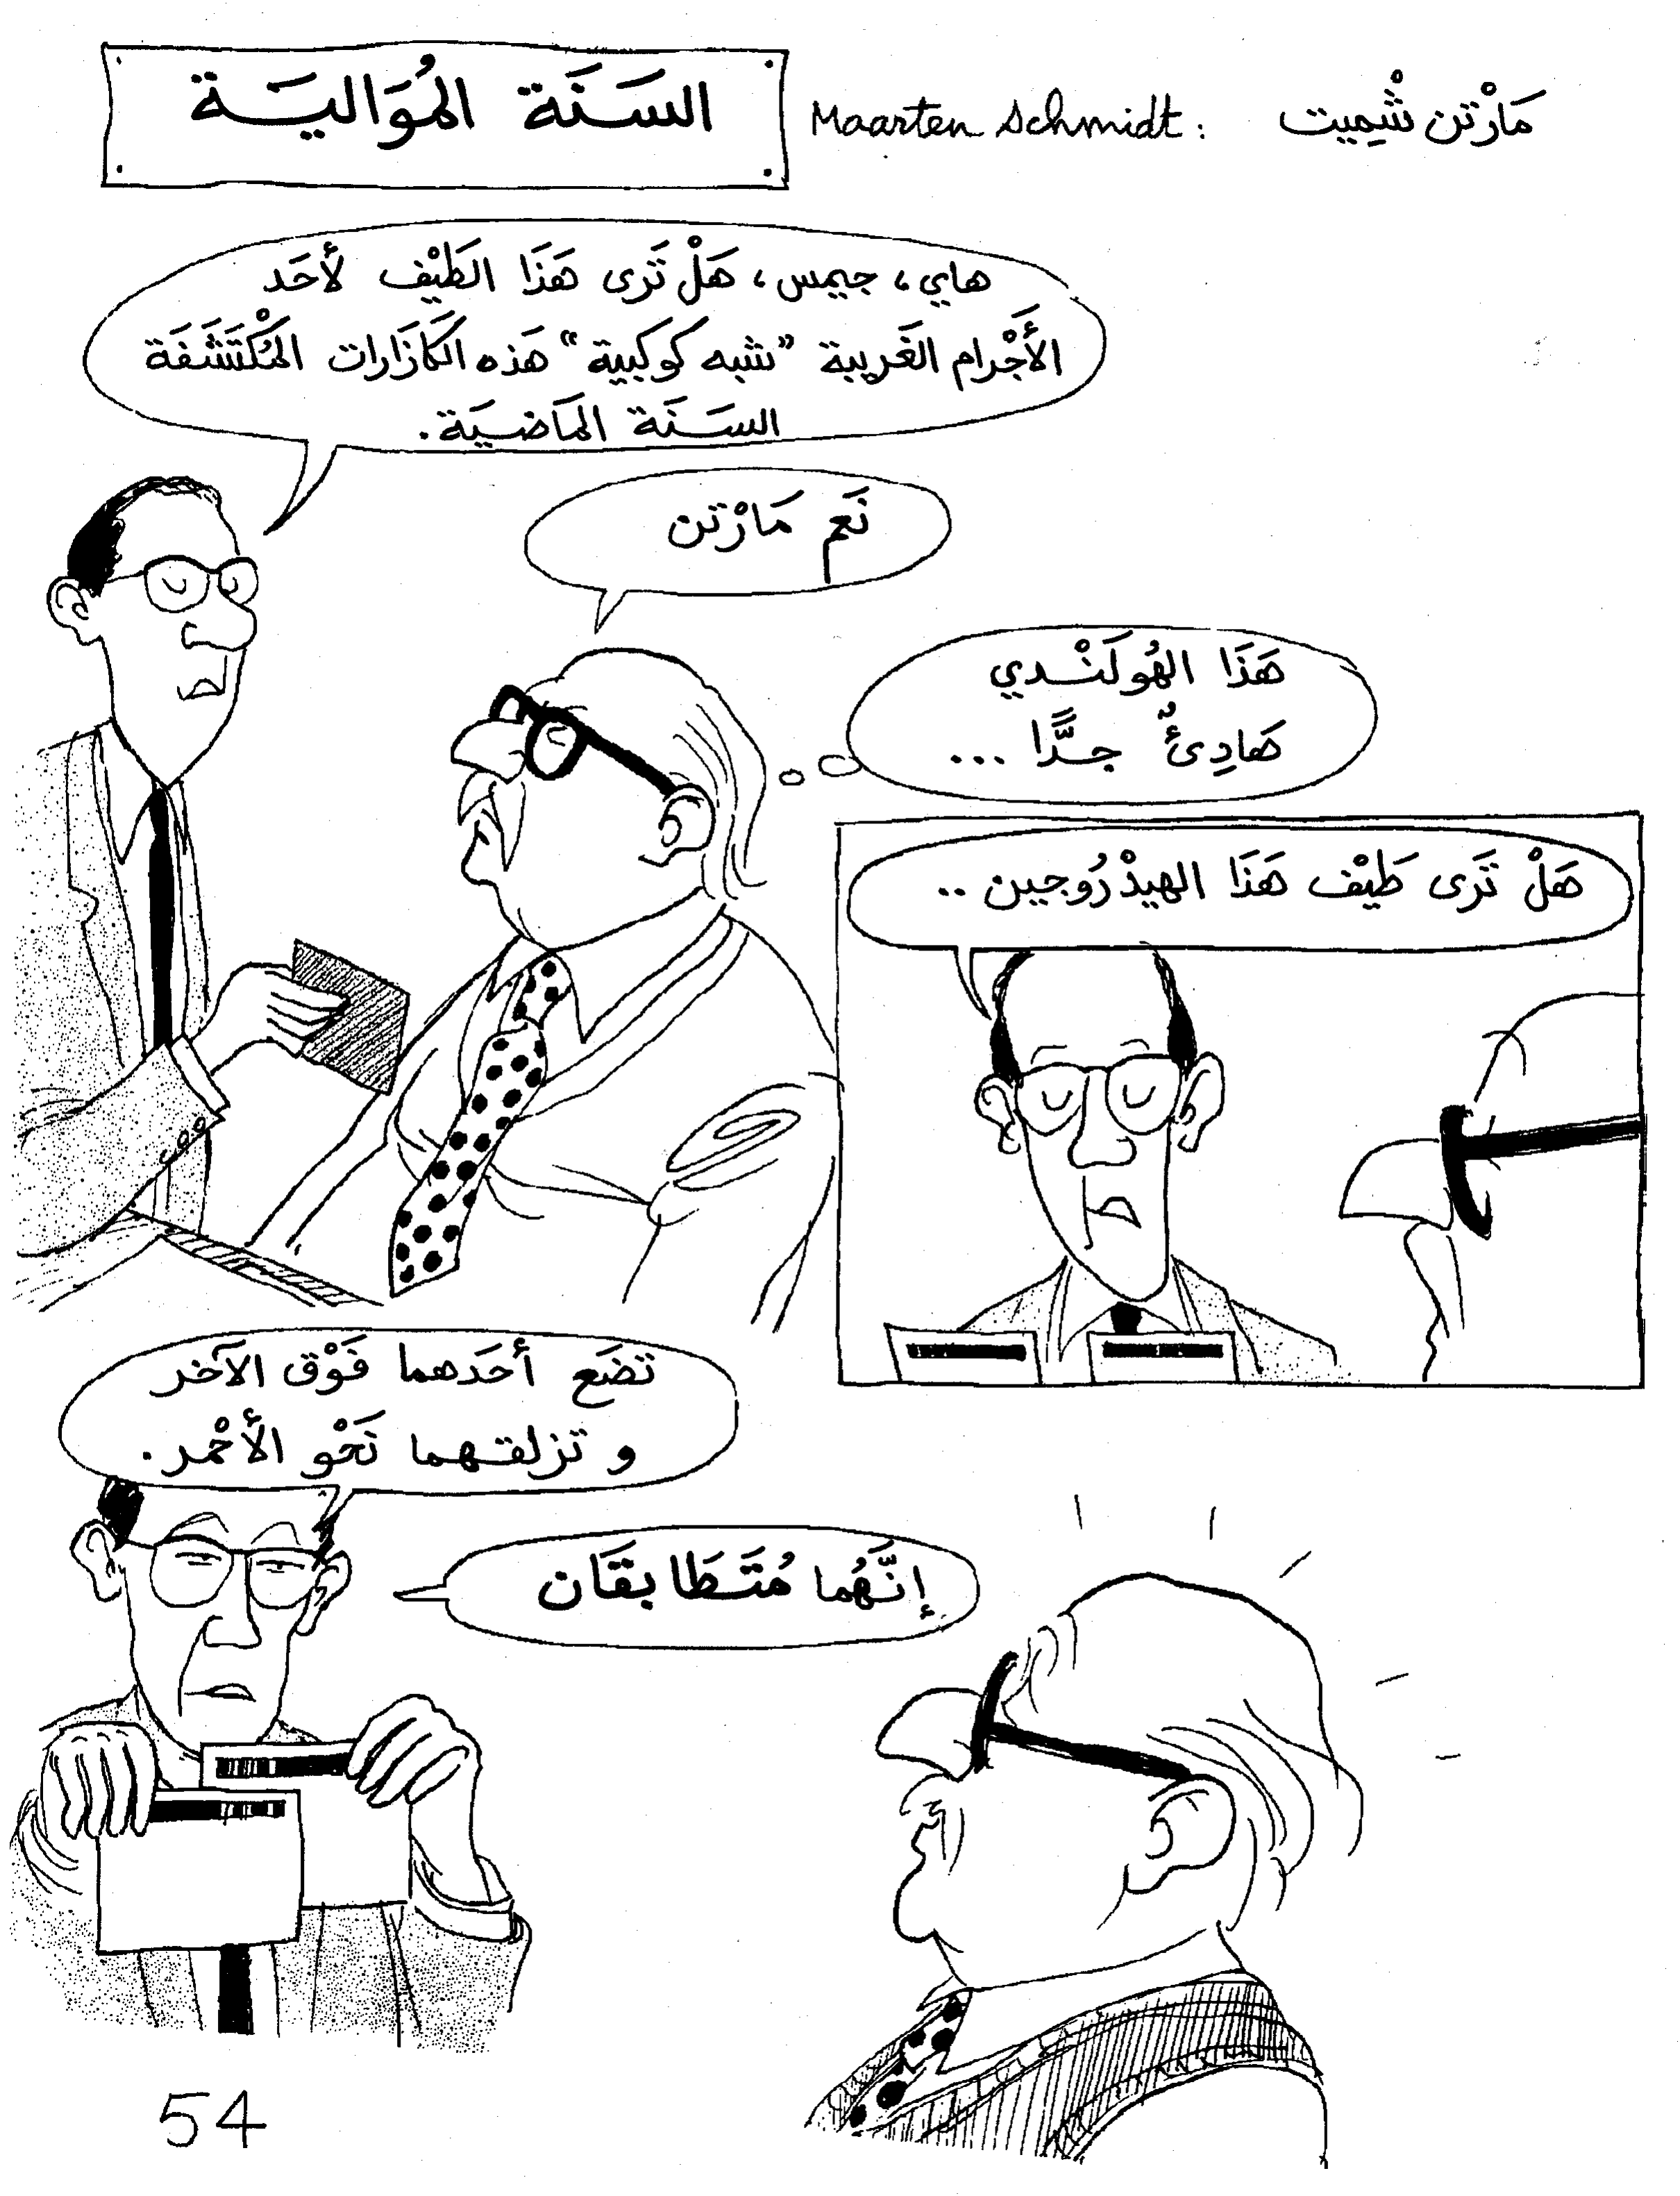 السَنَة المُوَاليَة
Maarten Schmidt : مَارْتن شْمِيت
هاي، جيمس، هَلْ تَرى هَذَا الطَيْف لأحَد
الأَجْرام الغَريبة "شبه كوكبية" هَذه الكَازَارات المُكْتَشَفَة
السَنَة المَاضيَة.
نَعَم مَارْتن
هَذَا الهُولَنْدي
هَادِئٌ جدًّا ...
هَلْ تَرَى طَيْف هَذَا الهيدْرُوجين ..
تضَع أحَدهما فَوْق الآخر
و تزلقهما نَحْو الأحْمر.
إنَّهُما مُتَطَابقَان
54